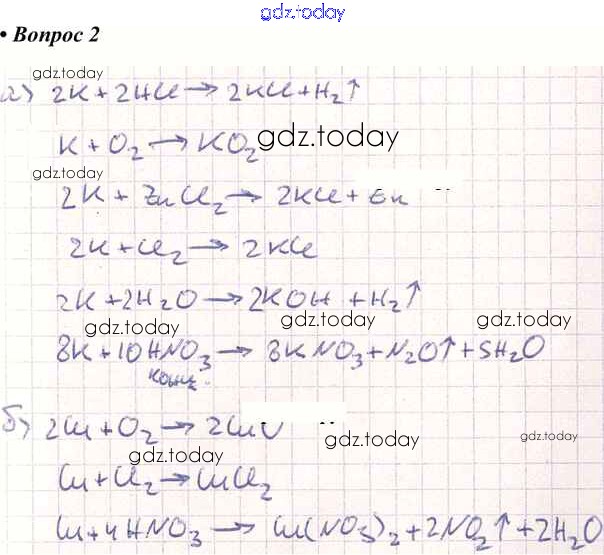 gdz.today
• Вопрос 2
gdz.today
а) 2K + 2HCl → 2KCl + H₂↑
K + O₂ → KO₂ gdz.today
gdz.today
2K + ZnCl₂ → 2KCl + Zn
2K + Cl₂ → 2KCl
2K + 2H₂O → 2KOH + H₂↑
gdz.today gdz.today gdz.today
8K + 10HNO₃ → 8KNO₃ + N₂O↑ + 5H₂O
конц.
б) 2Cu + O₂ → 2CuO
gdz.today gdz.today
gdz.today
Cu + Cl₂ → CuCl₂
Cu + 4HNO₃ → Cu(NO₃)₂ + 2NO₂↑ + 2H₂O